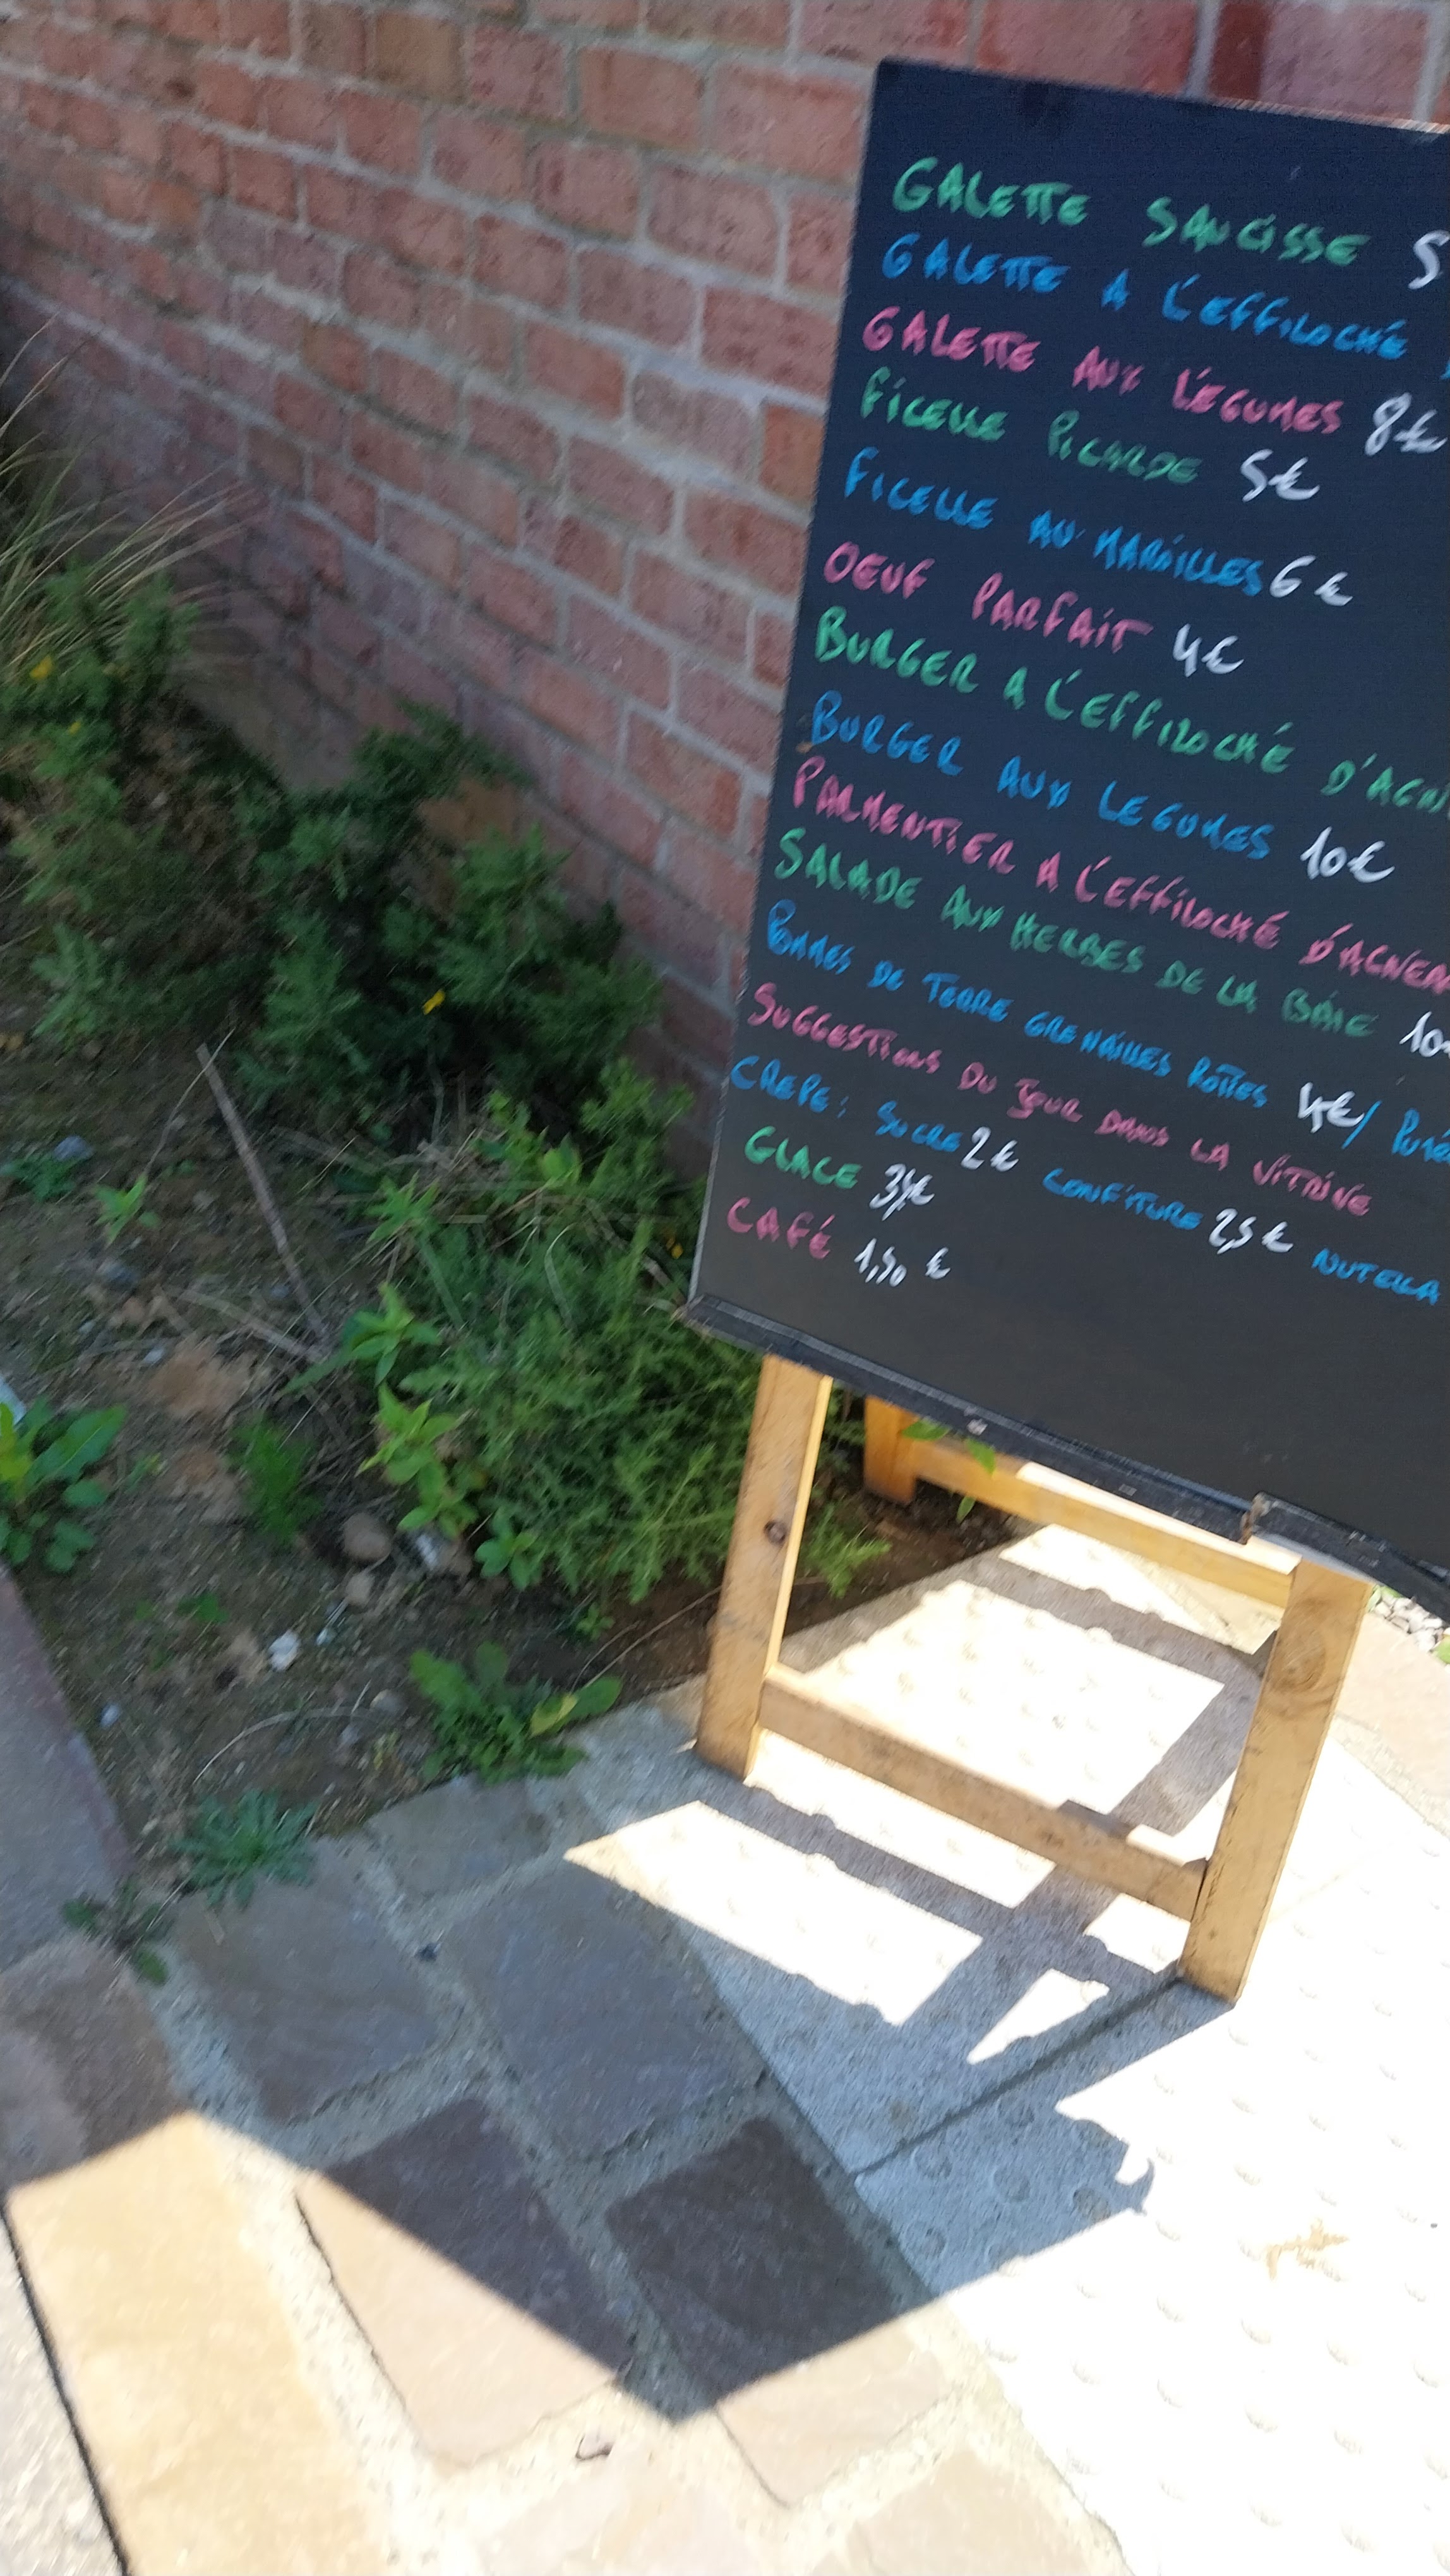 GALETTE SAUCISSE 5
GALETTE A L'EFFILOCHÉ
GALETTE AUX LÉGUMES 8€
FICELLE PICARDE 5€
FICELLE AU MAROILLES 6€
OEUF PARFAIT 4€
BURGER A L'EFFILOCHÉ D'AGN
BURGER AUX LEGUMES 10€
PARMENTIER A L'EFFILOCHÉ D'AGNEA
SALADE AUX HERBES DE LA BAIE 10
POMMES DE TERRE GRENAILLES RÔTIES 4€/ PURÉ
SUGGESTIONS DU JOUR DANS LA VITRINE
CREPE: SUCRE 2€ CONFITURE 2,5€ NUTELLA
GLACE 3€
CAFÉ 1,50 €